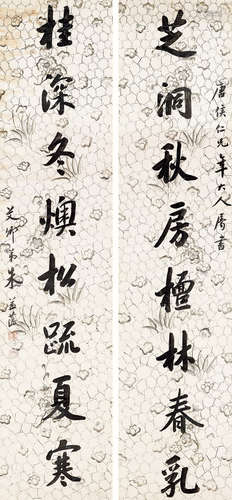 唐侯仁兄年大人屬書
芝洞秋房檀林春乳
桂深冬燠松疏夏寒
艾卿弟朱益藩